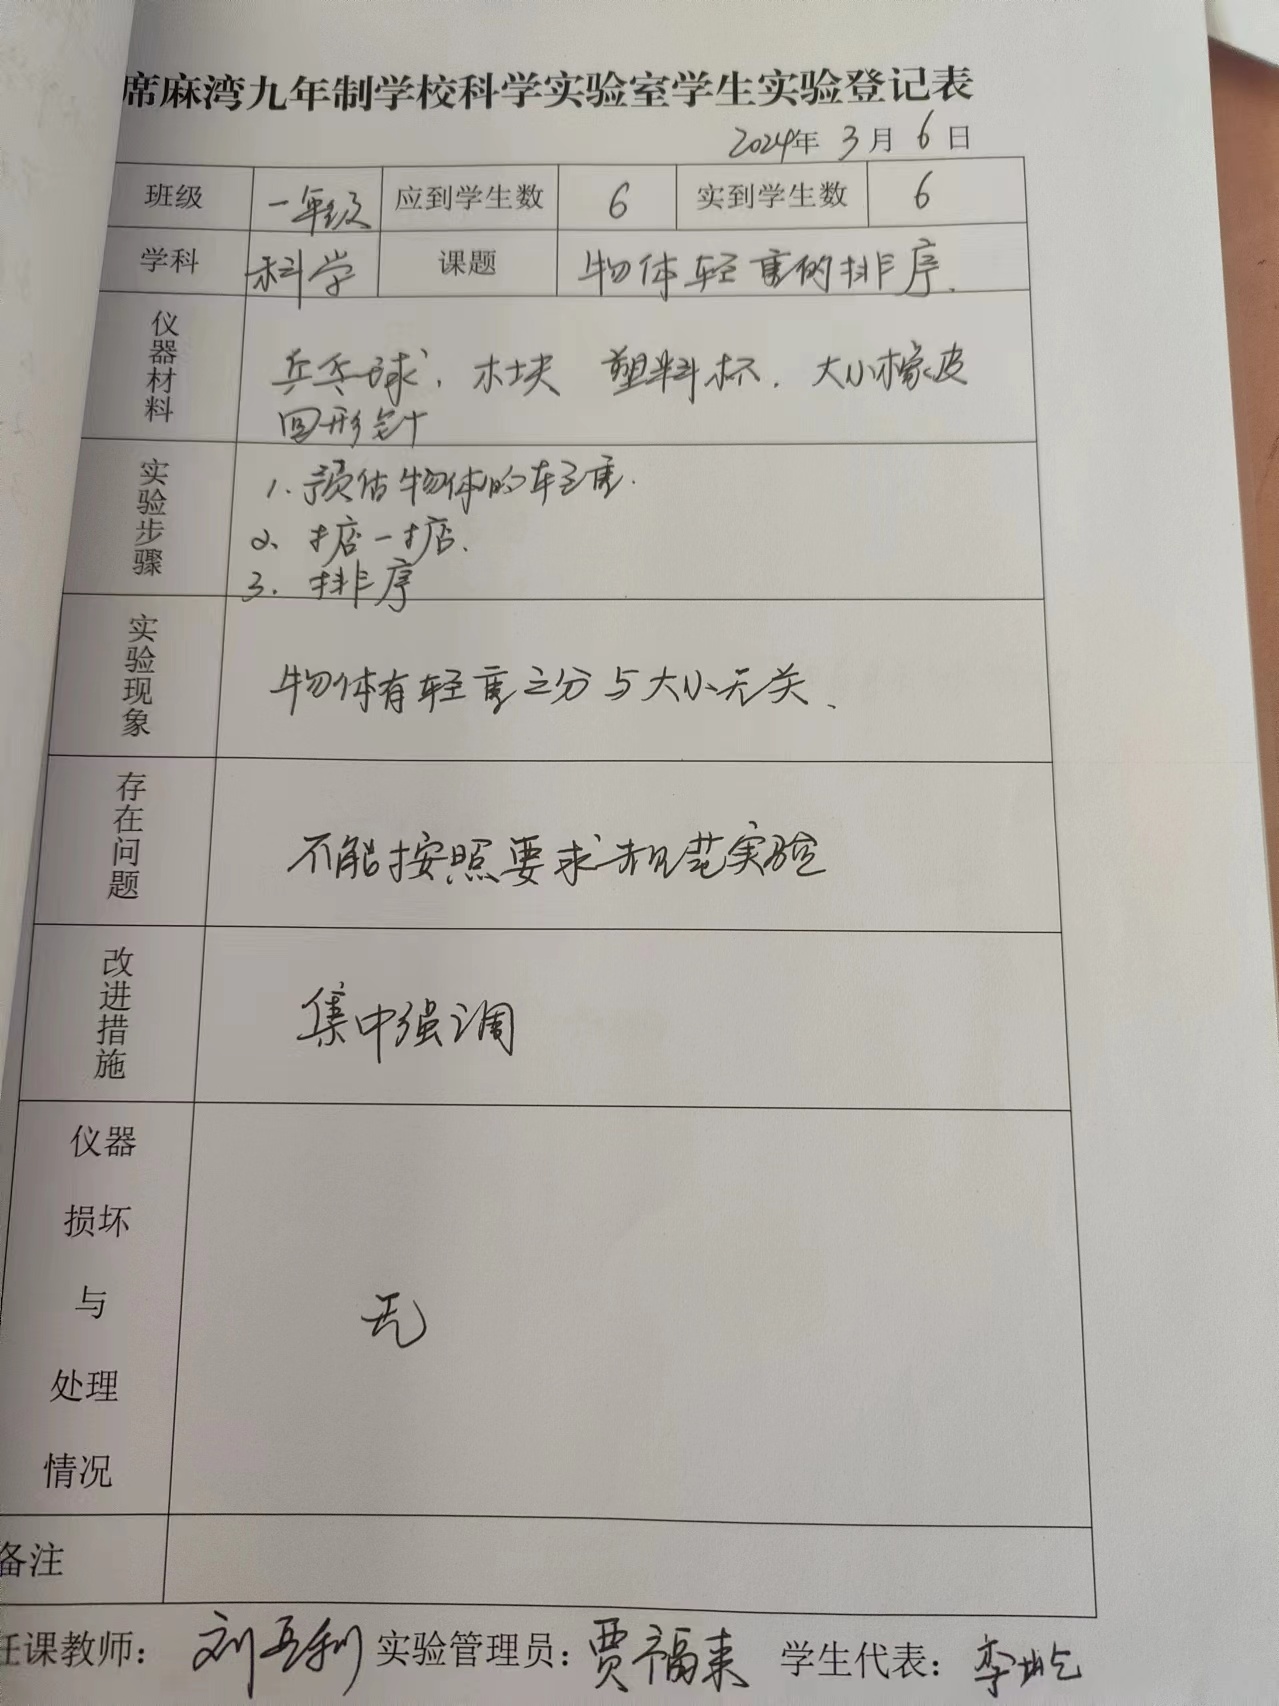 席麻湾九年制学校科学实验室学生实验登记表
2024年 3月 6日
班级 一年级 应到学生数 6 实到学生数 6
学科 科学 课题 物体轻重的排序.
仪器材料 乒乓球、木块 塑料杯、大小橡皮
回形针
实验步骤 1.预估物体的轻重.
2、掂一掂.
3.排序
实验现象 物体有轻重之分与大小无关、
存在问题 不能按照要求规范实验
改进措施 集中强调
仪器
损坏
与
处理
情况
无
备注
任课教师: 刘 利 实验管理员: 贾福来 学生代表: 李